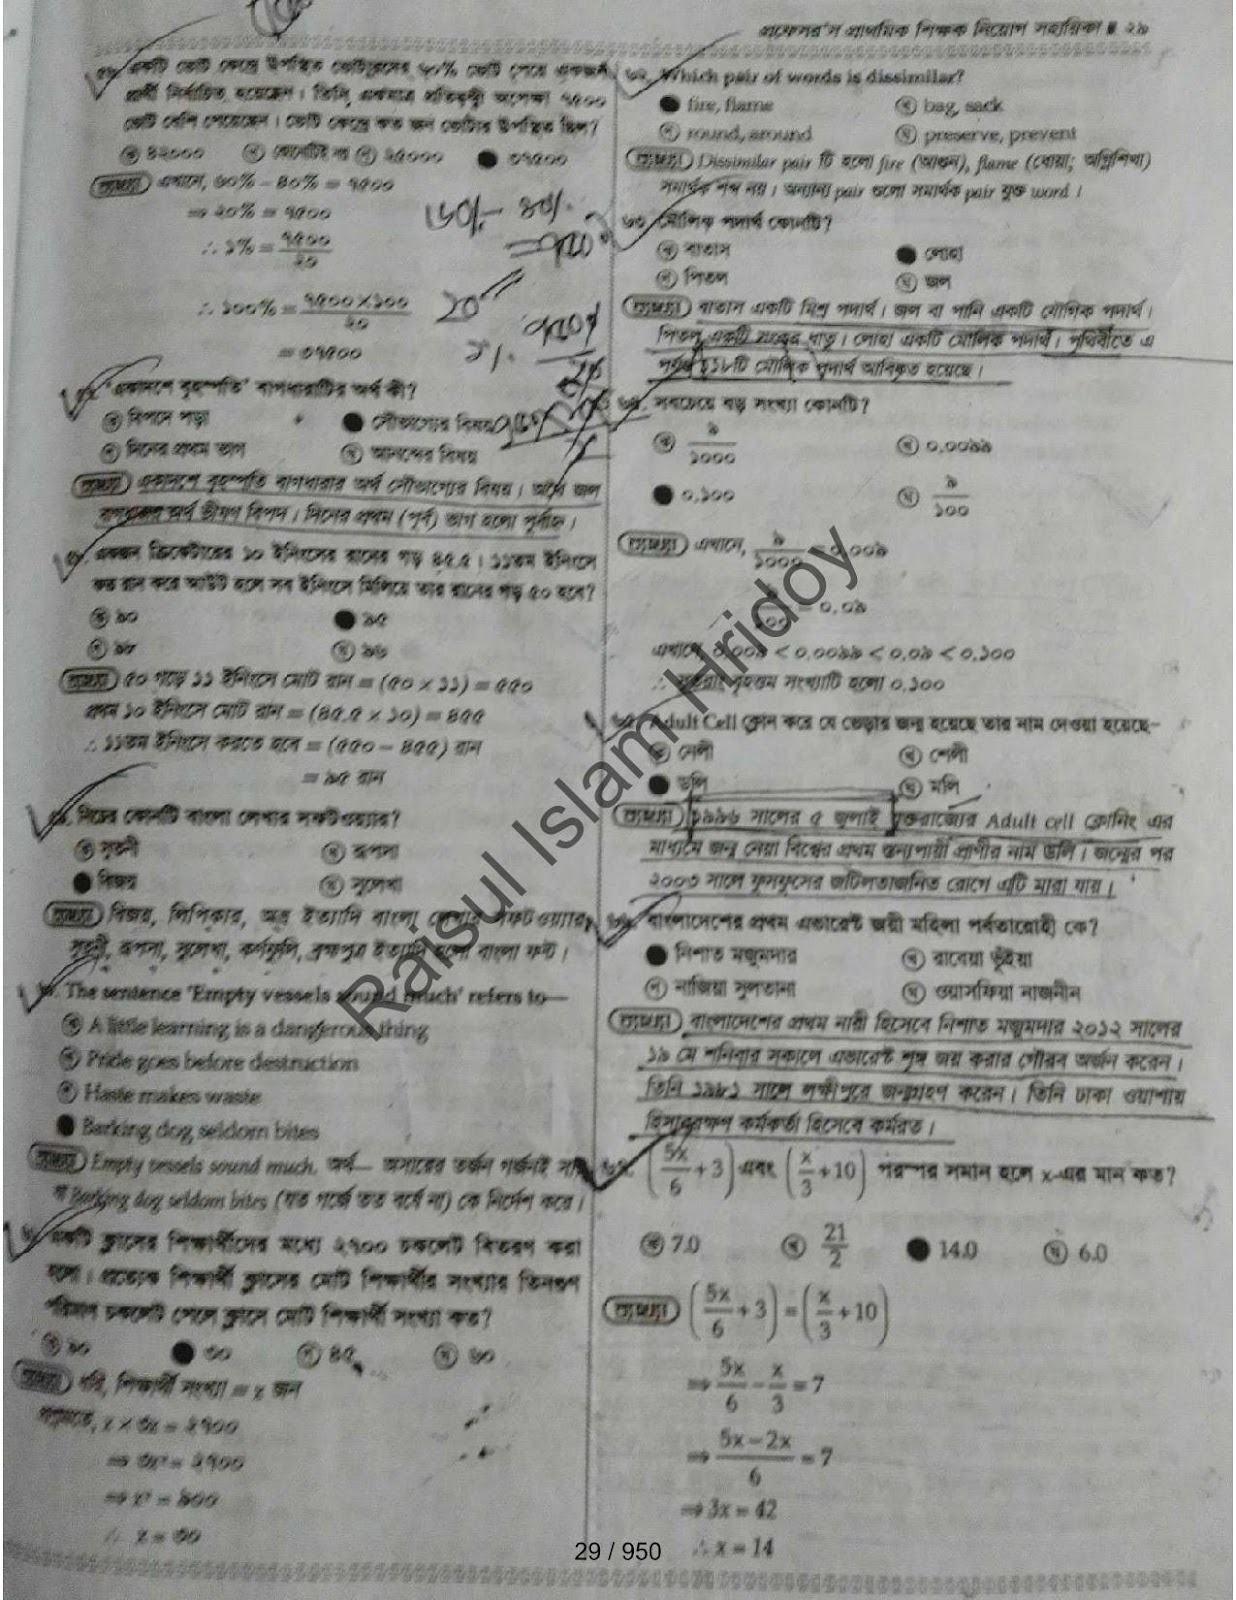 প্রফেসর'স প্রাথমিক শিক্ষক নিয়োগ সহায়িকা ■ ২৯
একটি ভোট কেন্দ্রে উপস্থিত ভোটারদের ৬০% ভোট পেয়ে একজন
প্রার্থী নির্বাচিত হয়েছেন। তিনি একমাত্র প্রতিদ্বন্দ্বী অপেক্ষা ৭৫০০
ভোট বেশি পেয়েছেন। ভোট কেন্দ্রে কত জন ভোটার উপস্থিত ছিল?
ক ৪২০০০ খ কোনোটিই নয় গ ২৫০০০ ৩৭৫০০
ব্যাখ্যা এখানে, ৬০% – ৪০% = ৭৫০০
⇒ ২০% = ৭৫০০
∴ ১% = ৭৫০০/২০
∴ ১০০% = ৭৫০০×১০০/২০
= ৩৭৫০০
৬০% – ৪০%
= ৭৫০০
'একাদশে বৃহস্পতি' বাগধারাটির অর্থ কী?
ক বিপদে পড়া সৌভাগ্যের বিষয়
গ দিনের প্রথম ভাগ ঘ আনন্দের বিষয়
ব্যাখ্যা একাদশে বৃহস্পতি বাগধারার অর্থ সৌভাগ্যের বিষয়। অথৈ জল
বাগধারার অর্থ ভীষণ বিপদ। দিনের প্রথম (পূর্ব) ভাগ হলো পূর্বাহ্ন।
একজন ক্রিকেটারের ১০ ইনিংসের রানের গড় ৪৫.৫। ১১তম ইনিংসে
কত রান করে আউট হলে সব ইনিংস মিলিয়ে তার রানের গড় ৫০ হবে?
ক ৯০ ৯৫
গ ৯৮ ঘ ৯৬
ব্যাখ্যা ৫০ গড়ে ১১ ইনিংসে মোট রান = (৫০ × ১১) = ৫৫০
প্রথম ১০ ইনিংসে মোট রান = (৪৫.৫ × ১০) = ৪৫৫
∴ ১১তম ইনিংসে করতে হবে = (৫৫০ – ৪৫৫) রান
= ৯৫ রান
নিচের কোনটি বাংলা লেখার সফটওয়্যার?
ক সুতন্বী খ রূপসা
বিজয় ঘ সুলেখা
ব্যাখ্যা বিজয়, লিপিকার, অভ্র ইত্যাদি বাংলা লেখার সফটওয়্যার;
সুতন্বী, রূপসা, সুলেখা, কর্ণফুলি, ব্রহ্মপুত্র ইত্যাদি হলো বাংলা ফন্ট।
The sentence 'Empty vessels sound much' refers to—
ক A little learning is a dangerous thing
খ Pride goes before destruction
গ Haste makes waste
Barking dog seldom bites
ব্যাখ্যা Empty vessels sound much. অর্থ— অসারের তর্জন গর্জনই সার
যা Barking dog seldom bites (যত গর্জে তত বর্ষে না) কে নির্দেশ করে।
একটি ক্লাসের শিক্ষার্থীদের মধ্যে ২৭০০ চকলেট বিতরণ করা
হলো। প্রত্যেক শিক্ষার্থী ক্লাসের মোট শিক্ষার্থীর সংখ্যার তিনগুণ
পরিমাণ চকলেট পেলে ক্লাসে মোট শিক্ষার্থী সংখ্যা কত?
ক ৯০ ৩০ গ ৪৫ ঘ ৬০
ব্যাখ্যা ধরি, শিক্ষার্থী সংখ্যা = x জন
প্রশ্নমতে, x × ৩x = ২৭০০
⇒ ৩x² = ২৭০০
⇒ x² = ৯০০
∴ x = ৩০
৬২. Which pair of words is dissimilar?
fire, flame খ bag, sack
গ round, around ঘ preserve, prevent
ব্যাখ্যা Dissimilar pair টি হলো fire (আগুন), flame (ধোঁয়া; অগ্নিশিখা)
সমার্থক শব্দ নয়। অন্যান্য pair গুলো সমার্থক pair যুক্ত word।
৬৩. মৌলিক পদার্থ কোনটি?
ক বাতাস লোহা
গ পিতল ঘ জল
ব্যাখ্যা বাতাস একটি মিশ্র পদার্থ। জল বা পানি একটি যৌগিক পদার্থ।
পিতল একটি সংকর ধাতু। লোহা একটি মৌলিক পদার্থ। পৃথিবীতে এ
পর্যন্ত ১১৮টি মৌলিক পদার্থ আবিষ্কৃত হয়েছে।
৬৪. সবচেয়ে বড় সংখ্যা কোনটি?
ক ৯/১০০০ খ ০.০০৯৯
০.১০০ ঘ ৯/১০০
ব্যাখ্যা এখানে, ৯/১০০০ = ০.০০৯
৯/১০০ = ০.০৯
এখানে, ০.০০৯ < ০.০০৯৯ < ০.০৯ < ০.১০০
∴ সুতরাং বৃহত্তম সংখ্যাটি হলো ০.১০০
৬৫. Adult Cell ক্লোন করে যে ভেড়ার জন্ম হয়েছে তার নাম দেওয়া হয়েছে–
ক নেলী খ শেলী
ডলি ঘ মলি
ব্যাখ্যা ১৯৯৬ সালের ৫ জুলাই যুক্তরাজ্যের Adult cell ক্লোনিং এর
মাধ্যমে জন্ম নেয়া বিশ্বের প্রথম স্তন্যপায়ী প্রাণীর নাম ডলি। জন্মের পর
২০০৩ সালে ফুসফুসের জটিলতাজনিত রোগে এটি মারা যায়।
৬৬. বাংলাদেশের প্রথম এভারেস্ট জয়ী মহিলা পর্বতারোহী কে?
নিশাত মজুমদার খ রাবেয়া ভূঁইয়া
গ নাজিয়া সুলতানা ঘ ওয়াসফিয়া নাজনীন
ব্যাখ্যা বাংলাদেশের প্রথম নারী হিসেবে নিশাত মজুমদার ২০১২ সালের
১৯ মে শনিবার সকালে এভারেস্ট শৃঙ্গ জয় করার গৌরব অর্জন করেন।
তিনি ১৯৮১ সালে লক্ষ্মীপুরে জন্মগ্রহণ করেন। তিনি ঢাকা ওয়াসায়
হিসাবরক্ষণ কর্মকর্তা হিসেবে কর্মরত।
৬৭. (5x/6 + 3) এবং (x/3 + 10) পরস্পর সমান হলে x-এর মান কত?
ক 7.0 খ 21/2 14.0 ঘ 6.0
ব্যাখ্যা (5x/6 + 3) = (x/3 + 10)
⇒ 5x/6 – x/3 = 7
⇒ 5x – 2x/6 = 7
⇒ 3x = 42
∴ x = 14
Raisul Islam Hridoy
29 / 950